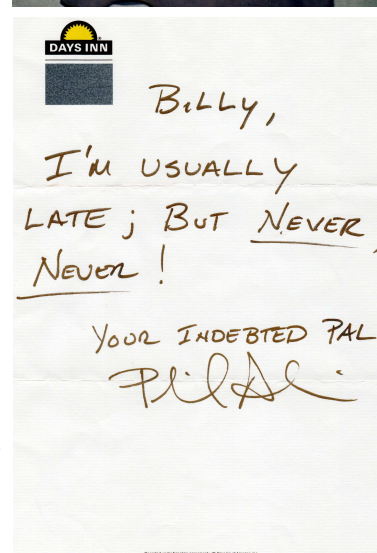 DAYS INN
BiLLy,
I'M USUALLY
LATE; BUT NEVER,
NEVER!
YOUR INDEBTED PAL